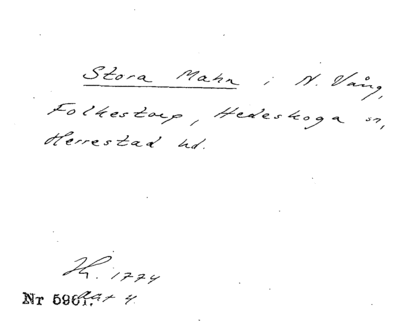 Stora Mahn i N. Vång,
Folkestorp, Hedeskoga sn,
Herrestad hd.
H. 1774
Nr 5961. akt 4